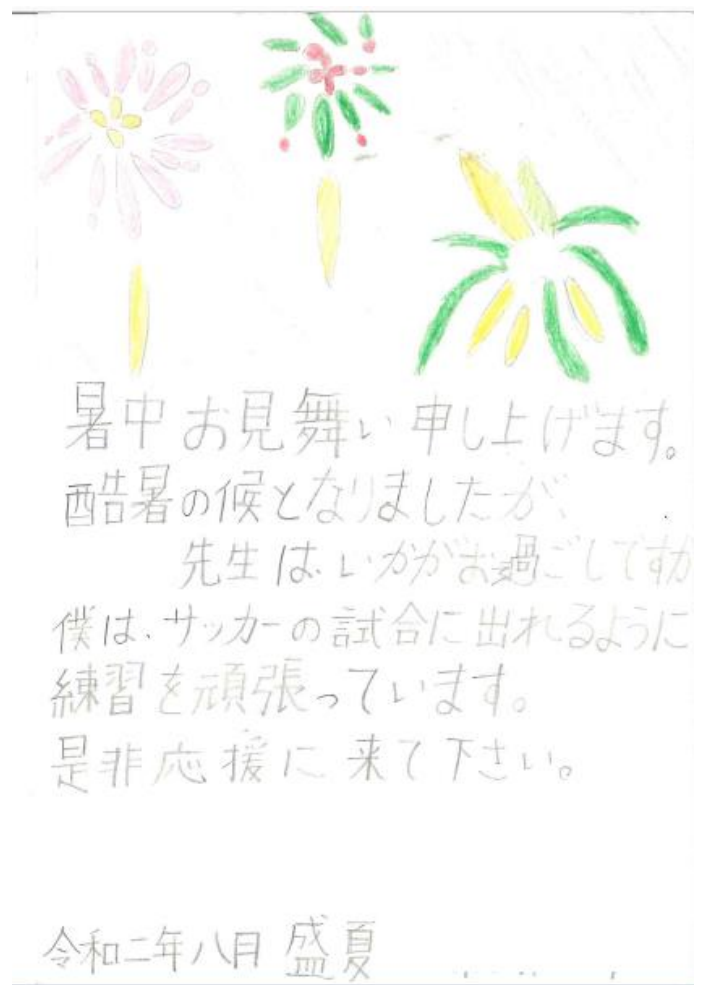 暑中お見舞い申し上げます。
酷暑の候となりましたが、
先生は、いかがお過ごしですか
僕は、サッカーの試合に出れるように
練習を頑張っています。
是非応援に来て下さい。
令和二年八月 盛夏